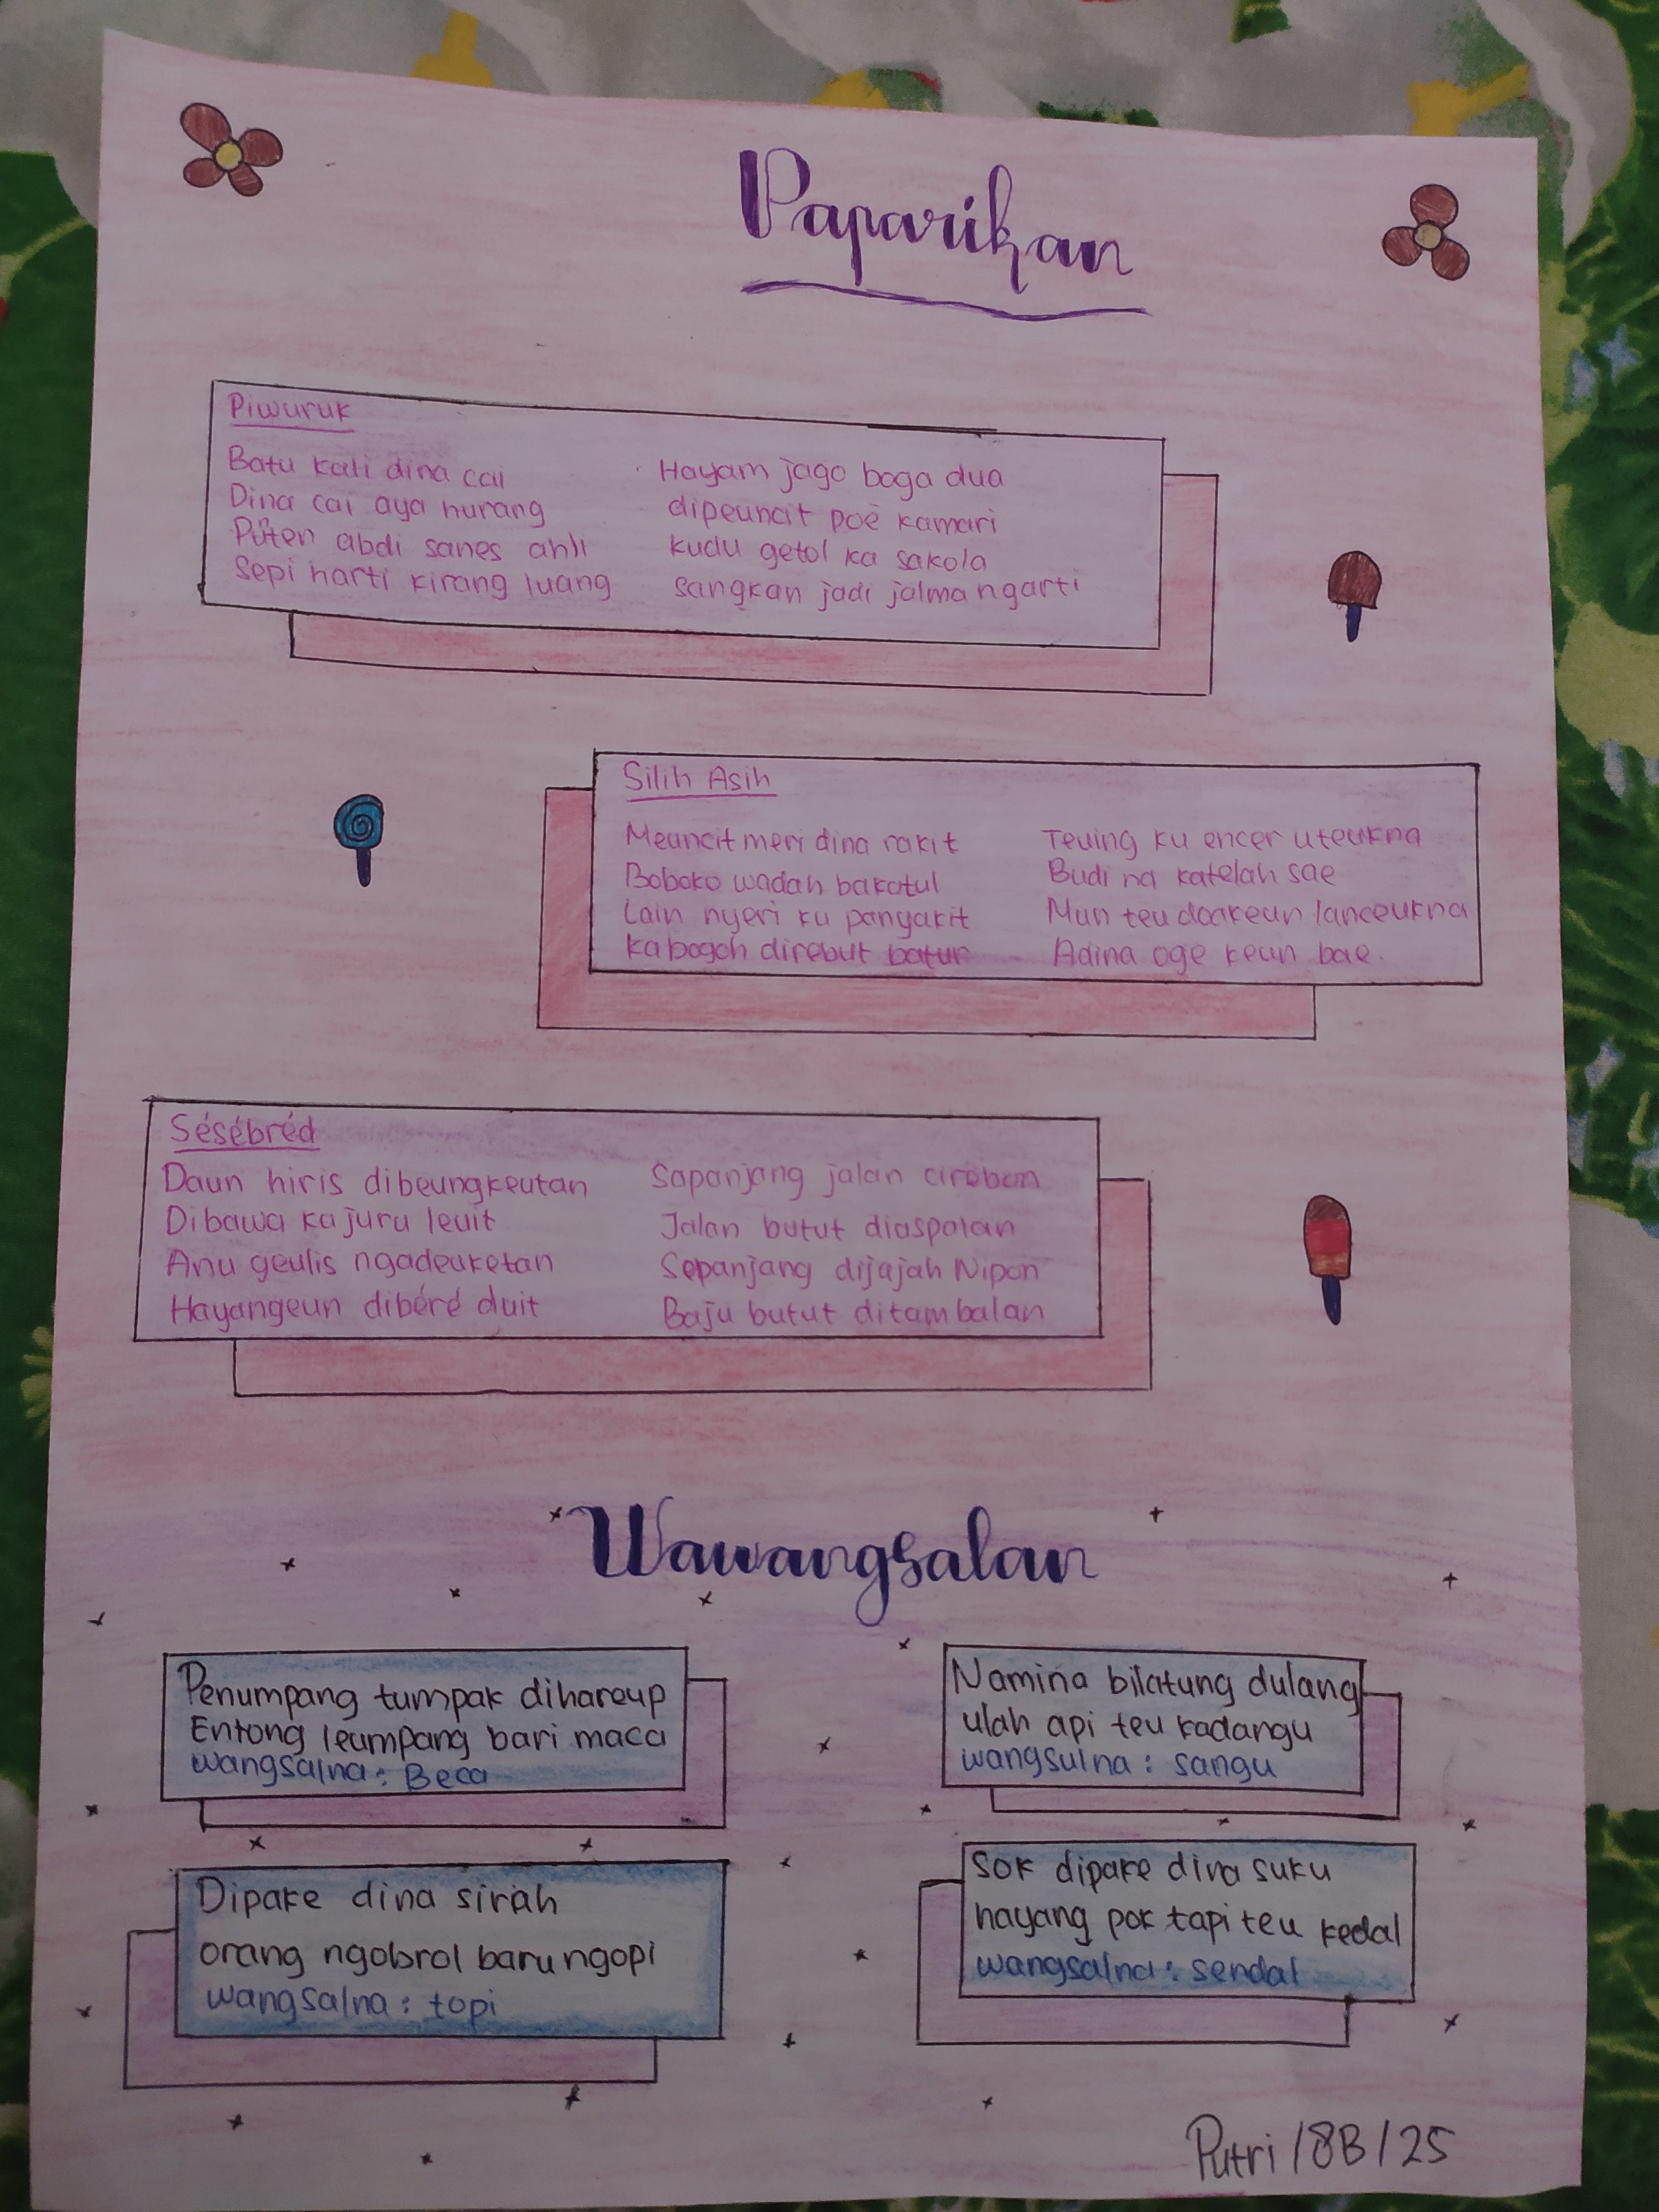 Paparikan
Piwuruk
Batu kali dina cai
Dina cai aya hurang
Punten abdi sanes ahli
Sepi harti kirang luang
Hayam jago boga dua
dipeuncit poé kamari
kudu getol ka sakola
sangkan jadi jalma ngarti
Silih Asih
Meuncit meri dina rakit
Boboko wadah bakatul
Lain nyeri ku panyakit
kabogoh direbut batur
Teuing ku encer uteukna
Budi na katelah sae
Mun teu doakeun lanceukna
Adina oge keun bae.
Sésébréd
Daun hiris dibeungkeutan
Dibawa ka juru leuit
Anu geulis ngadeuketan
Hayangeun dibéré duit
Sapanjang jalan cirebon
Jalan butut diaspalan
Sepanjang dijajah Nipon
Baju butut ditambalan
Wawangsalan
Penumpang tumpak dihareup
Entong leumpang bari maca
wangsalna : Beca
Namina bilatung dulang
ulah api teu kadangu
wangsulna : sangu
Dipake dina sirah
orang ngobrol baru ngopi
wangsalna : topi
Sok dipake dina suku
hayang pok tapi teu kedal
wangsalna : sendal
Putri / 8B / 25